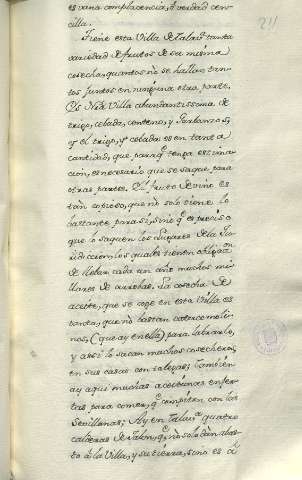 es vana complacencia, o verdad sen-
cilla.
211
Tiene esta Villa de Talavª tanta
variedad de frutos de su misma
cosecha, quantos no se hallan tan-
tos juntos en ninguna otra parte.
Es Nrã Villa abundantissima de
trigo, cebada, centeno, y Garbanzos;
y el trigo, y cebada es en tanta
cantidad, que para q̃ tenga estima-
cion, es necesario que se saque para
otras partes. El fruto de vino es
tan copioso, que no solo tiene lo
bastante para si, sino q̃ es preciso
que lo saquen los Lugares de la Ju-
risdiccion, los quales tienen obligacⁿ
de llebar cada un año muchos mi-
llares de arrobas. La cosecha de
aceite, que se coge en esta Villa es
tanta, que no bastan catorce moli-
nos, (que ay en ella) para labrarlo,
y assi lo sacan muchos cosecheros,
en sus casas con
tambien
ay aqui muchas aceitunas enfer-
tas para comer, q̃ compiten con las
Sevillanas; Ay en Talavª quatro
calderas de Jabon, q̃ no solo dan abas-
to à la Villa, y su tierra, sino es à